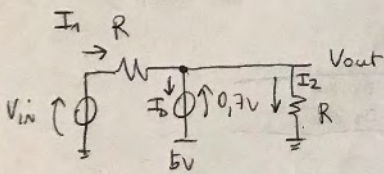 I1 R
Vout
Vin ID 0,7V I2 R
5V